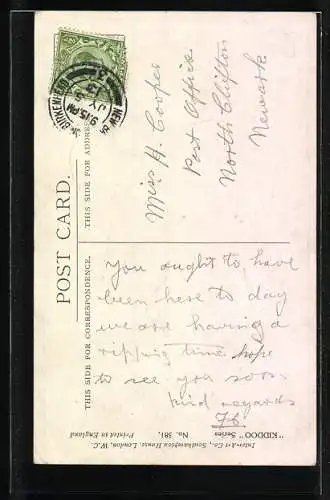 POST CARD.
THIS SIDE FOR CORRESPONDENCE.
THIS SIDE FOR ADDRESS
NEW
9.15 PM
JY
13
Miss H. Cooper
Post Office
North Clifton
Newark
You ought to have
been here to day
we are having a
ripping time hope
to see you soon
kind regards
"KIDDOO" Series No. 581.
Inter-Art Co., Southampton House, London, W.C.
Printed in England